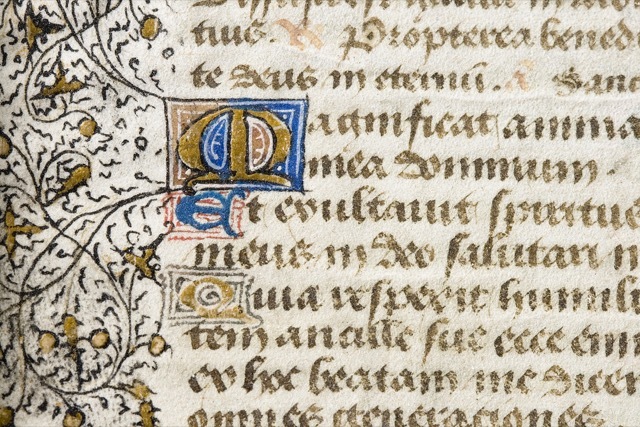 tiuis. V Propterea bened
te deus in eternū. A Sanc
Magnificat anima
mea dominum.
Et exultauit spiritus
meus in deo salutari m
Quia respexit humili
tem ancille sue ecce eni
ex hoc beatam me dicen
omnes generaciones